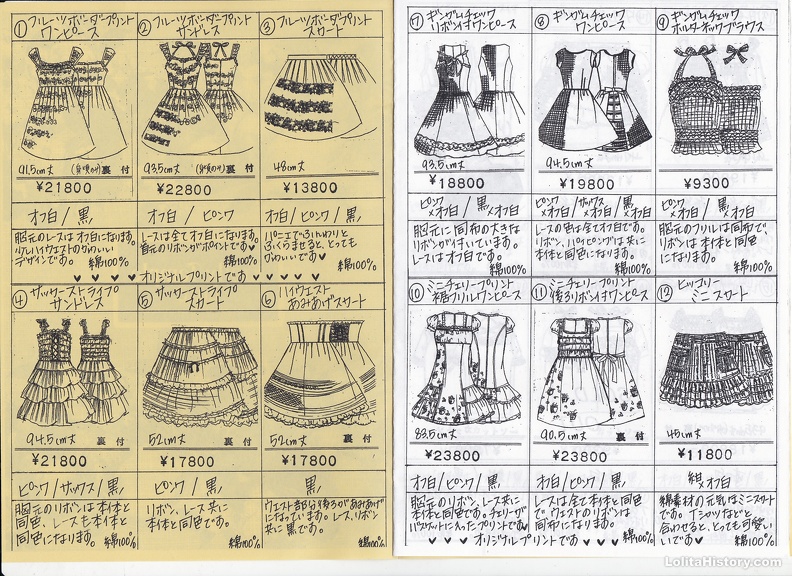 ① フルーツボーダープリント
ワンピース
② フルーツボーダープリント
サンドレス
③ フルーツボーダープリント
スカート
91.5cm丈 裏付
¥21800
93.5cm丈 裏付
¥22800
48cm丈
¥13800
オフ白/黒
オフ白/ピンク
オフ白/ピンク/黒
胸元のレースはオフ白になります。
デザインです。
綿100%
レースは全てオフ白になります。
首元のリボンがポイントです♥
綿100%
パニエでふんわりと
ふくらませると、とっても
かわいいです♥
綿100%
♥ ♥ ♥ ♥ オリジナルプリントです ♥ ♥ ♥ ♥ ♥
④ サッカーストライプ
サンドレス
⑤ サッカーストライプ
スカート
⑥ ハイウエスト
あみあげスカート
94.5cm丈 裏付
¥21800
52cm丈 裏付
¥17800
52cm丈 裏付
¥17800
ピンク/サックス/黒
ピンク/黒
黒
胸元のリボンは本体と
同色、レースも本体と
同色です。
綿100%
リボン、レース共に
本体と同色です。
綿100%
ウエスト部分後ろがあみあげ
になっています。レース、リボン
共に黒です。
綿100%
⑦ ギンガムチェック
リボン付ワンピース
⑧ ギンガムチェック
ワンピース
⑨ ギンガムチェック
ホルターネックブラウス
93.5cm丈
¥18800
94.5cm丈
¥19800
¥9300
ピンク×オフ白/黒×オフ白
ピンク×オフ白/サックス×オフ白/黒×オフ白
黒×オフ白
胸元に同布の大きな
リボンが付いています。
レースはオフ白です。
綿100%
レースの色は全てオフ白です。
リボン、パイピングは共に
同色になります。
綿100%
胸元のフリルは同布で、
リボンは本体と同色
になります。
綿100%
⑩ ミニチェリープリント
裾フリルワンピース
⑪ ミニチェリープリント
後ろリボン付ワンピース
⑫ ヒッコリー
ミニスカート
83.5cm丈
¥23800
90.5cm丈
¥23800
45cm丈
¥11800
オフ白/ピンク/黒
オフ白/ピンク/黒
紺×オフ白
胸元のリボン、レース共に
本体と同色です。チェリーが
バスケットに入ったプリントです♥
綿100%
レースは全て本体と同色
で、ウエストのリボンは
同布になります。
綿100%
綿素材の元気なミニスカート
です。Tシャツなどと
合わせると、とっても可愛い
です♥
綿100%
♥ ♥ ♥ ♥ オリジナルプリントです ♥ ♥ ♥ ♥
LolitaHistory.com